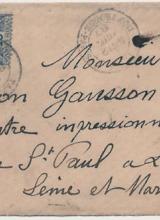 Monsieur
on Gausson
tre impressionn
e St Paul a L
Seine et Mar